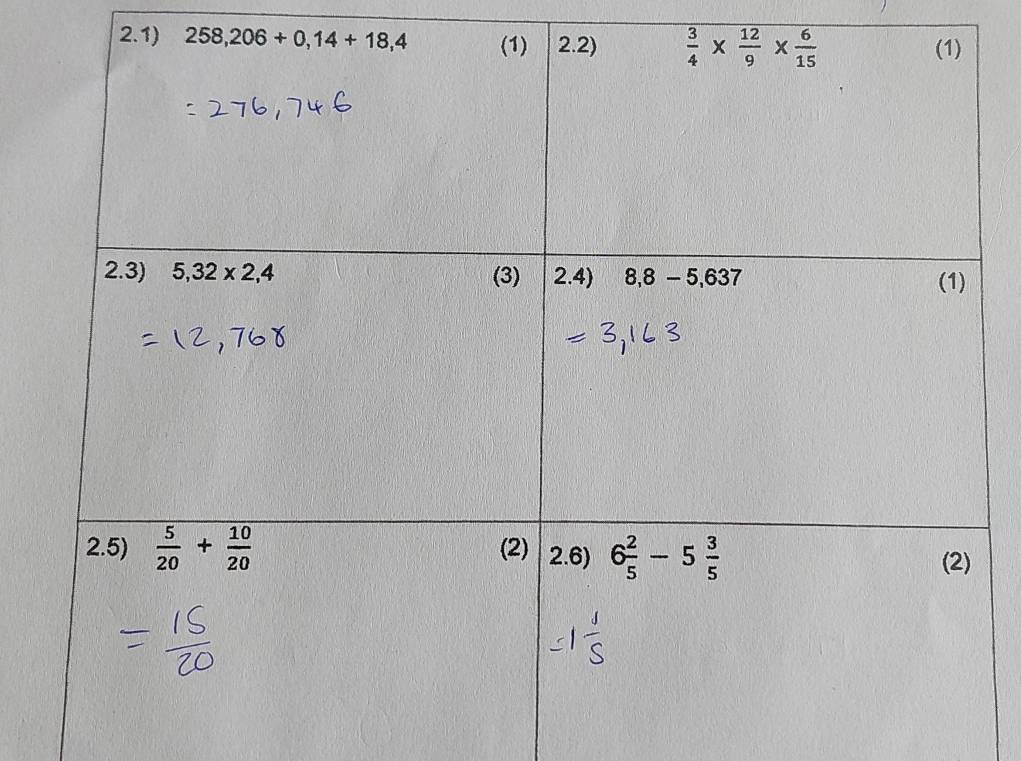 2.1) 258,206 + 0,14 + 18,4 (1)
= 276,746
2.2) 3/4 x 12/9 x 6/15 (1)
2.3) 5,32 x 2,4 (3)
= 12,768
2.4) 8,8 – 5,637 (1)
= 3,163
2.5) 5/20 + 10/20 (2)
= 15/20
2.6) 6 2/5 – 5 3/5 (2)
= 1 1/5